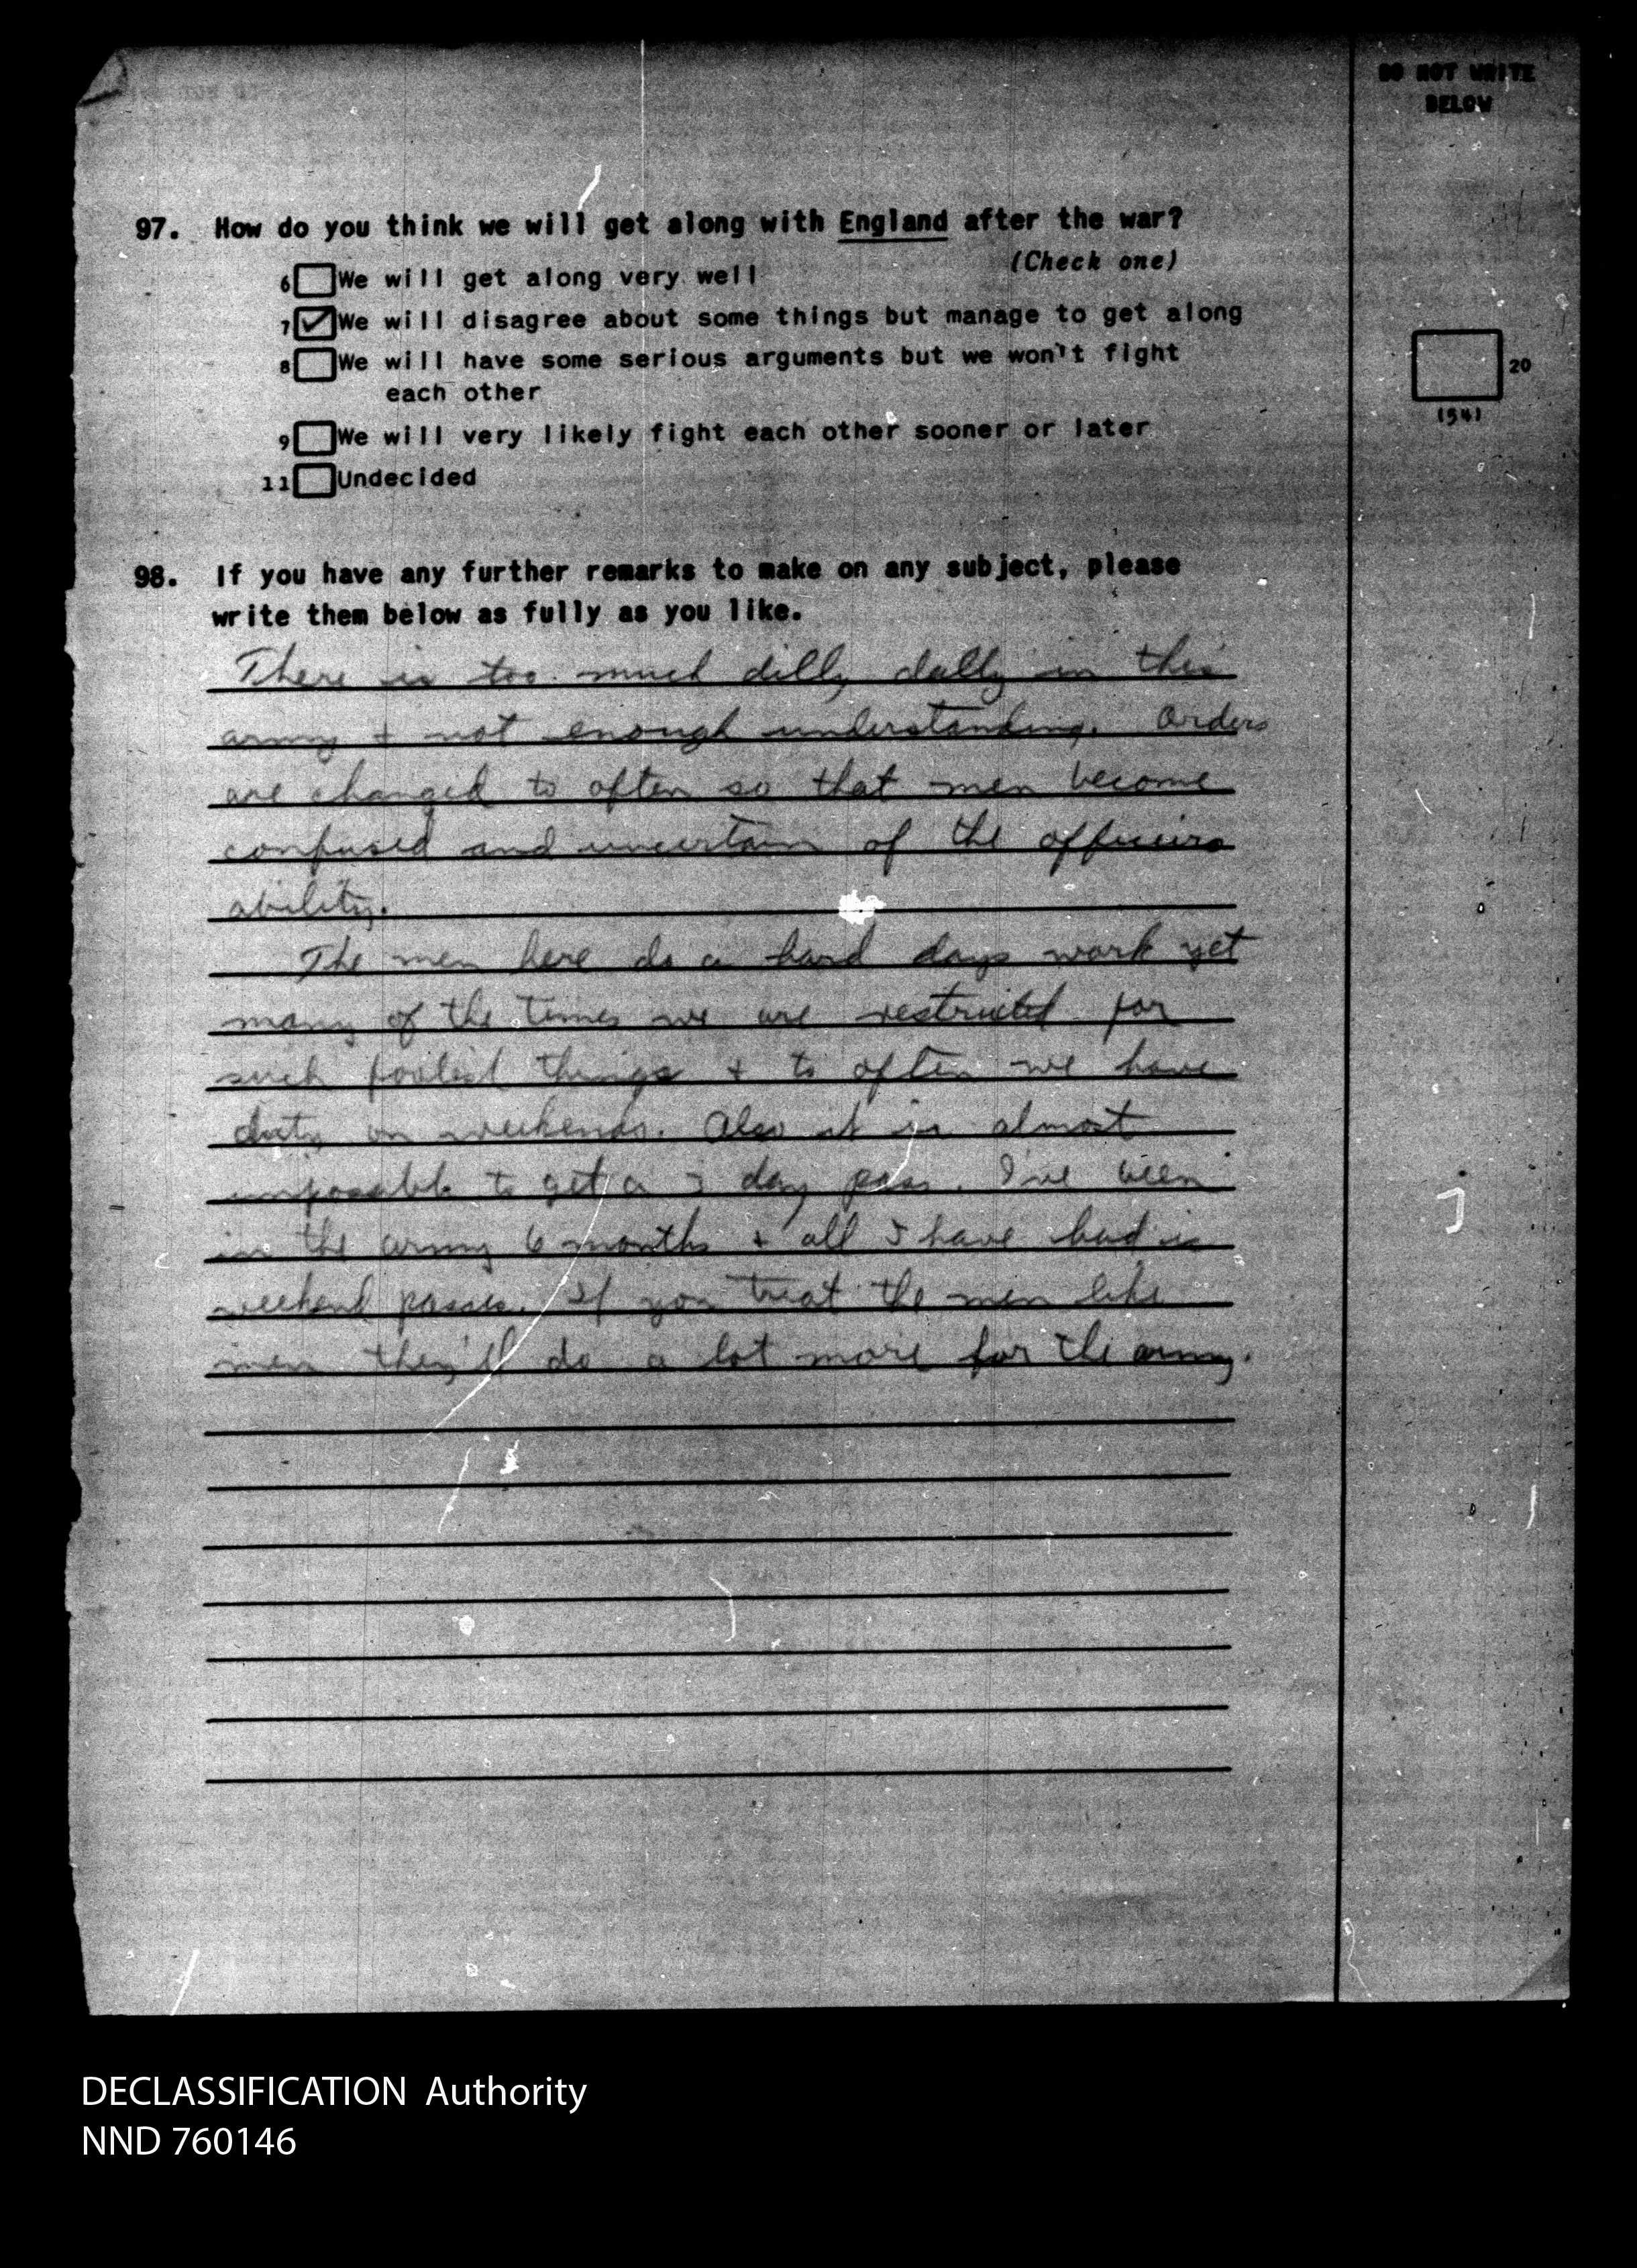 DO NOT WRITE
BELOW
97. How do you think we will get along with England after the war?
(Check one)
6 We will get along very well
7 ✓ We will disagree about some things but manage to get along
8 We will have some serious arguments but we won't fight
each other
9 We will very likely fight each other sooner or later
11 Undecided
20
(54)
98. If you have any further remarks to make on any subject, please
write them below as fully as you like.
There is too much dilly dally in this
army + not enough understanding. Orders
are changed to often so that men become
confused and uncertain of the officiers
ability.
The men here do a hard days work yet
many of the times we are restricted for
such foolish things + to often we have
duty on weekends. Also it is almost
impossible to get a 3 day pass. I've been
in the army 6 months + all I have had is
weekend passes. If you treat the men like
men they'll do a lot more for the army.
DECLASSIFICATION Authority
NND 760146